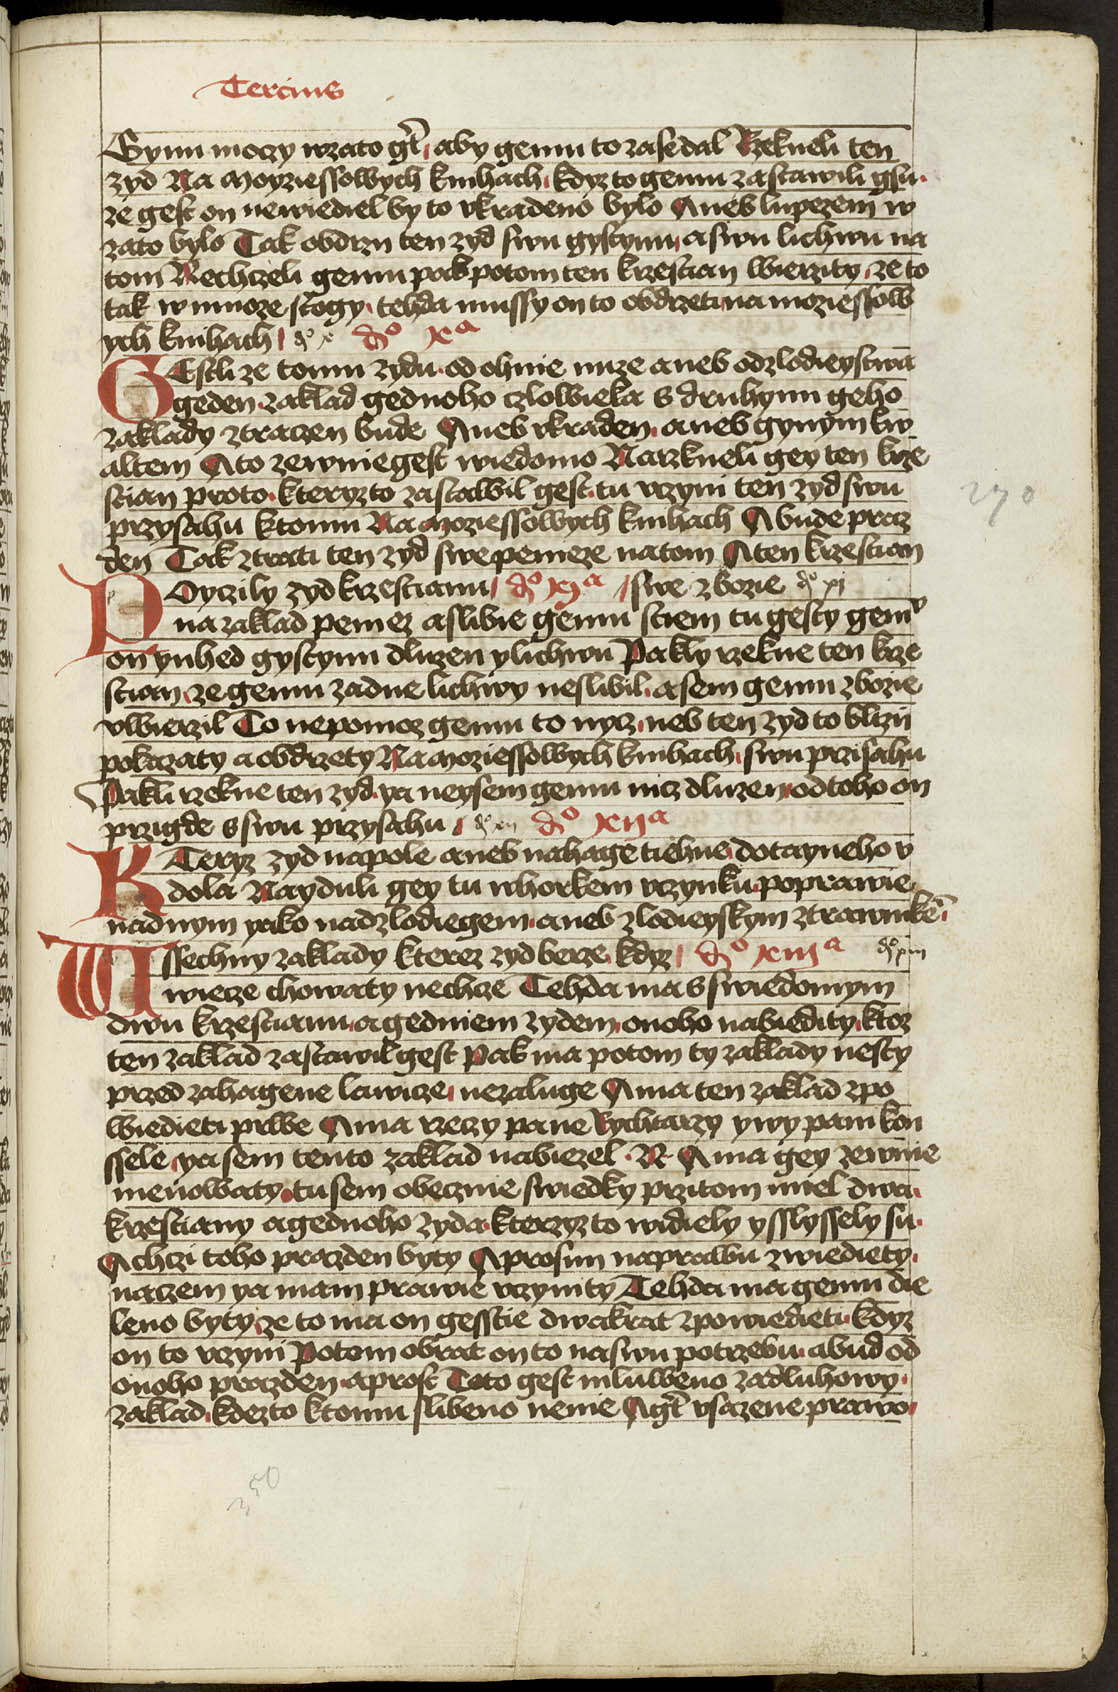 Tercius
Gynu moczy wzato gt̄ aby gemu to zasedal Rzekneli ten
zyd Na moyziessowych knihach kdyz to gemu zastawili gsu
ze gest on newiediel by to vkradeno bylo Aneb lupezem w
zato bylo Tak obdrzi ten zyd swu gystynu a swu lichwu na
tom Nechzeli gemu pak potom ten krzestian wierzity ze to
tak w mnoze stogy tehda mussy on to obdrzeti na moziessow
ych knihach do x do xa
GEstli ze tomu zydu od ohnie nuze aneb od zlodieystwa
geden zaklad gednoho czlowieka s druhymi geho
zaklady ztraczen bude Aneb vkraden aneb gynym kw
altem A to zewnie gest wiedomo Narzkneli gey ten krze
stian proto kteryzto zastawil gest tu vczyni ten zyd swu
przysahu k tomu Na moziessowych knihach A bude praz
den Tak ztrati ten zyd swe penieze na tom A ten krzestian
Poyczily zyd krzestianu do xia swe zbozie do xi
na zaklad peniez a slibie gemu sctiem tu gesty gemu
on ynhed gystynu dluzen y lichwu Pakly rzekne ten krze
stian ze gemu zadne lichwy neslibil a sem gemu zbozie
vwierzil To nepomoz gemu to nycz neb ten zyd to blizij
pokazaty a obdrzety Na moziessowych knihach swu przisahu
Pakli rzekne ten zyd ya neysem gemu nicz dluzen od toho on
przigde s swu przysahu do xii do xiia
KTeryz zyd na pole aneb na hage tiehne do tayneho v
dola Nayduli gey tu w horkem vczynku poprawie
nad nym yako nad zlodiegem aneb zlodieyskym ztrawnikē
Wssechny zaklady kterez zyd berze kdyz do xiiia do xiii
wiecze chowaty nechze Tehda ma s swiedomym
dwu krzestianu a gedniem zydem onoho nabiedity ktoz
ten zaklad zastawil gest Pak ma potom ty zaklady nesty
przed zahagene lawicze nezaluge A ma ten zaklad zpo
wiedieti prwe A ma rzeczy pane Rychtarzy y wy pani kon
ssele ya sem tento zaklad nabiezel N A ma gey zewnie
menowaty tu sem obecznie swiedky przi tom miel dwa
krzestiany a gednoho zyda kterzyzto widiely y sslyssely su
A chczi toho prazden byty A prosim na prawu zwiediety
naczem ya mam prawie vczynity Tehda ma gemu die
leno byty ze to ma on gesstie dwakrat zpowiedieti kdyz
on to vczyni Potom obrat on to na swu potrzebu a bud od
onoho prazden a prost Toto gest mluweno za dluhowy
zaklad kdezto k tomu slibeno nenie A gt̄ vsazene prawo
270
350